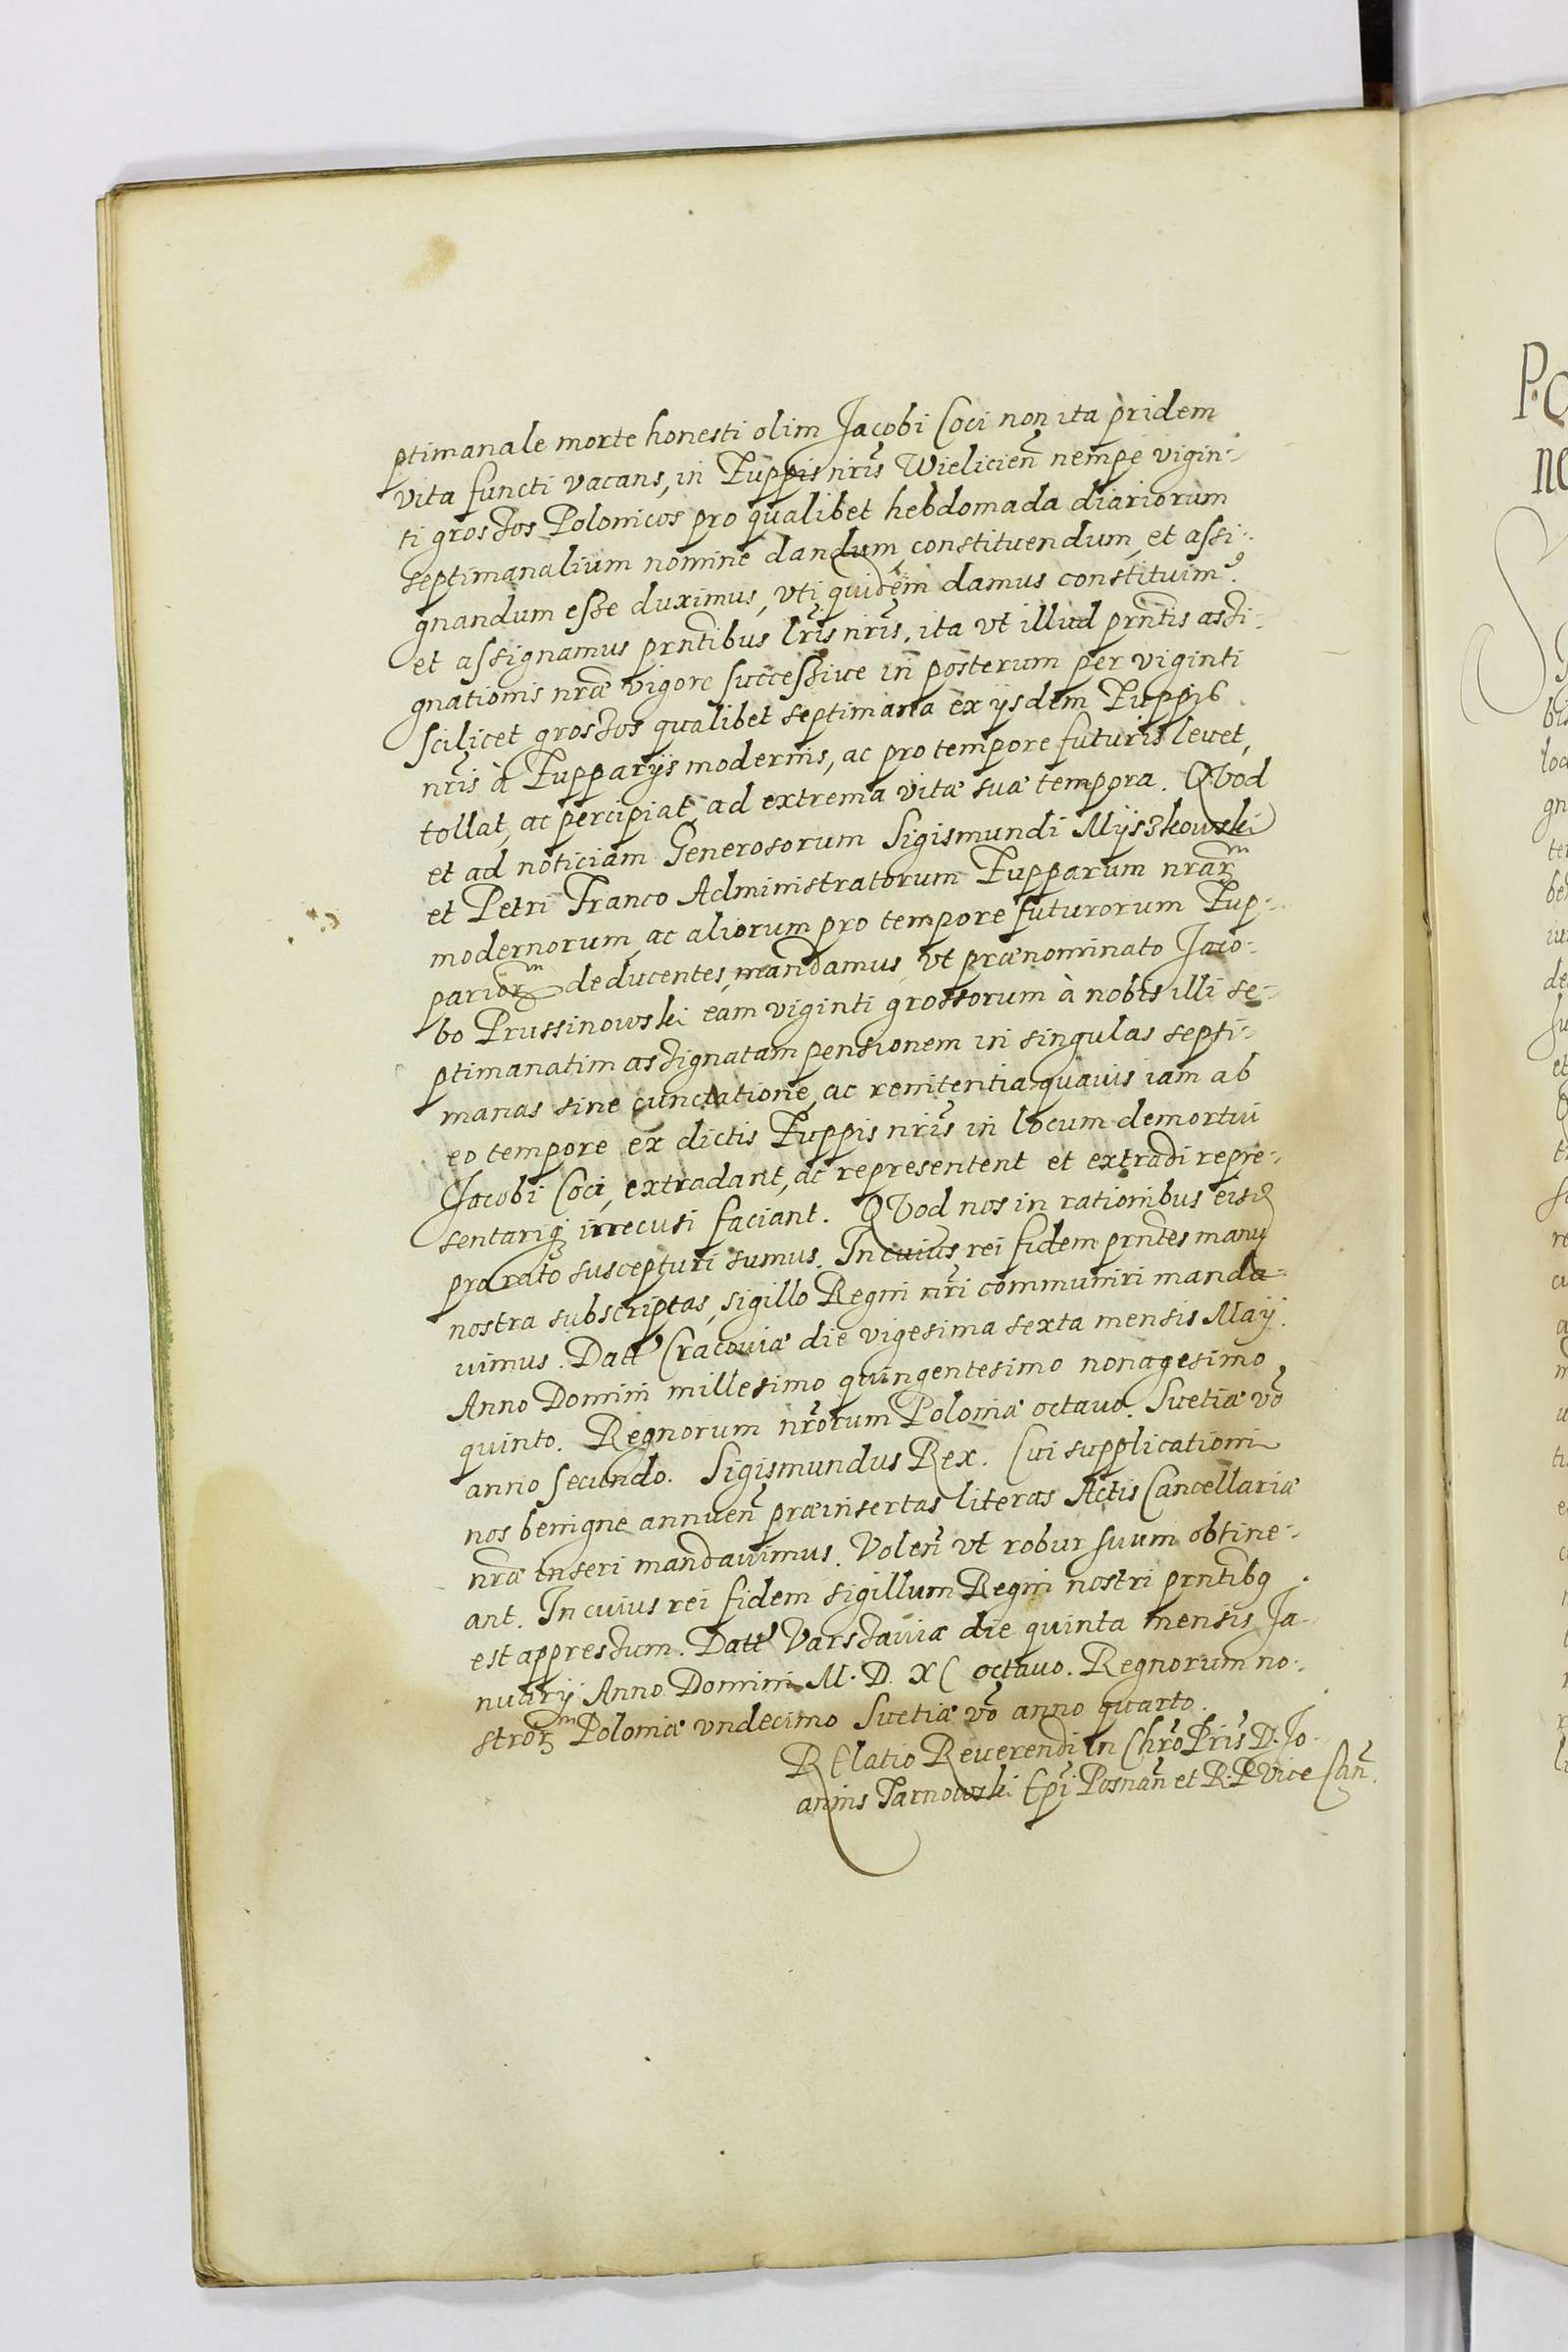 ptimanale morte honesti olim Jacobi Coci non ita pridem
vita functi vacans, in Zuppis nris Wielicien nempe vigin-
ti grossos Polonicos pro qualibet hebdomada diariorum
septimanalium nomine dandum, constituendum, et assi-
gnandum esse duximus, vti quidem damus constituim9
et assignamus prntibus lris nris, ita vt illud prntis assi-
gnationis nræ vigore successiue in posterum per viginti
scilicet grossos qualibet septimana ex ijsdem Zuppis
nris à Zupparijs modernis, ac pro tempore futuris leuet,
tollat, ac percipiat, ad extrema vitæ suæ tempora. QVod
et ad noticiam Generosorum Sigismundi Myszkowski
et Petri Franco Administratorum Zupparum nrarm
modernorum, ac aliorum pro tempore futurorum Zup-
pariorm deducentes, mandamus, vt prænominato Jaco-
bo Prussinowski eam viginti grossorum à nobis illi se-
ptimanatim assignatam pensionem in singulas septi-
manas sine cunctatione, ac renitentia quauis iam ab
eo tempore ex dictis Zuppis nris in locum demortui
Jacobi Coci, extradant, ac representent et extradi repre-
sentariq irrecusi faciant. QVod nos in rationibus eisd
pro rato suscepturi sumus. In cuius rei fidem prntes manu
nostra subscriptas, sigillo Regni nri communiri manda-
uimus. Datt Cracouiæ die vigesima sexta mensis Maij.
Anno Domini millesimo quingentesimo nonagesimo
quinto. Regnorum nrorum Poloniæ octauo. Suetiæ vo
anno secundo. Sigismundus Rex. Cui supplicationi
nos benigne annuen præinsertas literas Actis Cancellariæ
nræ inseri mandauimus. Volen vt robur suum obtine-
ant. In cuius rei fidem sigillum Regni nostri prntibq
est appressum. Datt Varssauiæ die quinta mensis Ja-
nuarij Anno Domini M. D. XC octauo. Regnorum no-
strorm Poloniæ vndecimo Suetiæ vo anno quarto.
RElatio Reuerendi in Chro Pris D. Jo-
annis Tarnowski Epi Posnan et R. P. Vice Can.